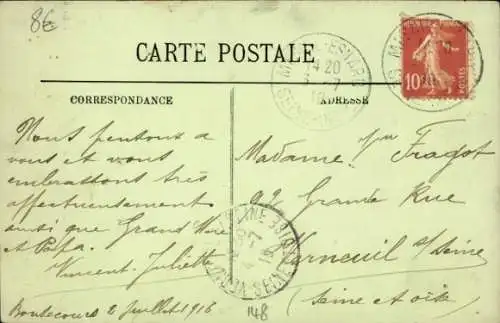 8€
CARTE POSTALE
CORRESPONDANCE
ADRESSE
10
POSTES
14 20
Nous pensons à
vous et vous
embrassons très
affectueusement
ainsi que Grand'Mère
et Papa.
Vincent. Juliette
2 juillet 1916
Madame Fragot
92 Grande Rue
Verneuil s/ Seine
(Seine et Oise
148